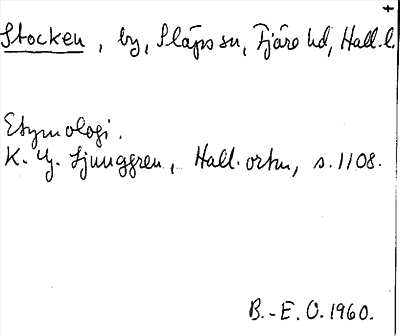 +
Stocken, by, Släps sn, Fjäre hd, Hall. l.
Etymologi.
K. G. Ljunggren, Hall. ortn, s. 1108.
B.-E. O. 1960.